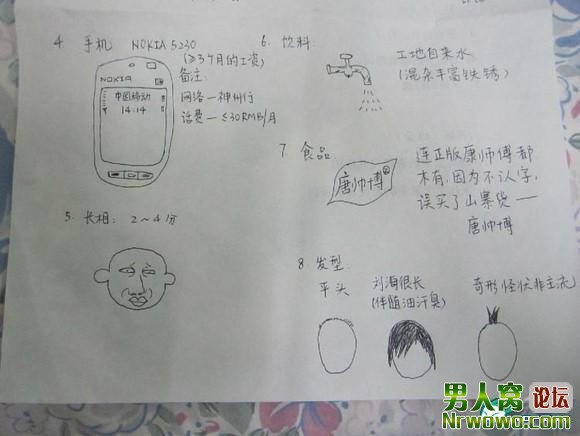 4. 手机 NOKIA 5230
(≥3个月的工资)
备注:
网络—神州行
话费—≤30RMB/月
NOKIA
中国移动
14:14
5. 长相: 2～4分
6. 饮料
工地自来水
(混杂丰富铁锈)
7. 食品
唐帅博®
连正版康师傅都
木有,因为不认字,
误买了山寨货——
唐帅博
8 发型
平头
刘海很长
(伴随油汗臭)
奇形怪状非主流
男人窝 论坛
Nrwowo.com